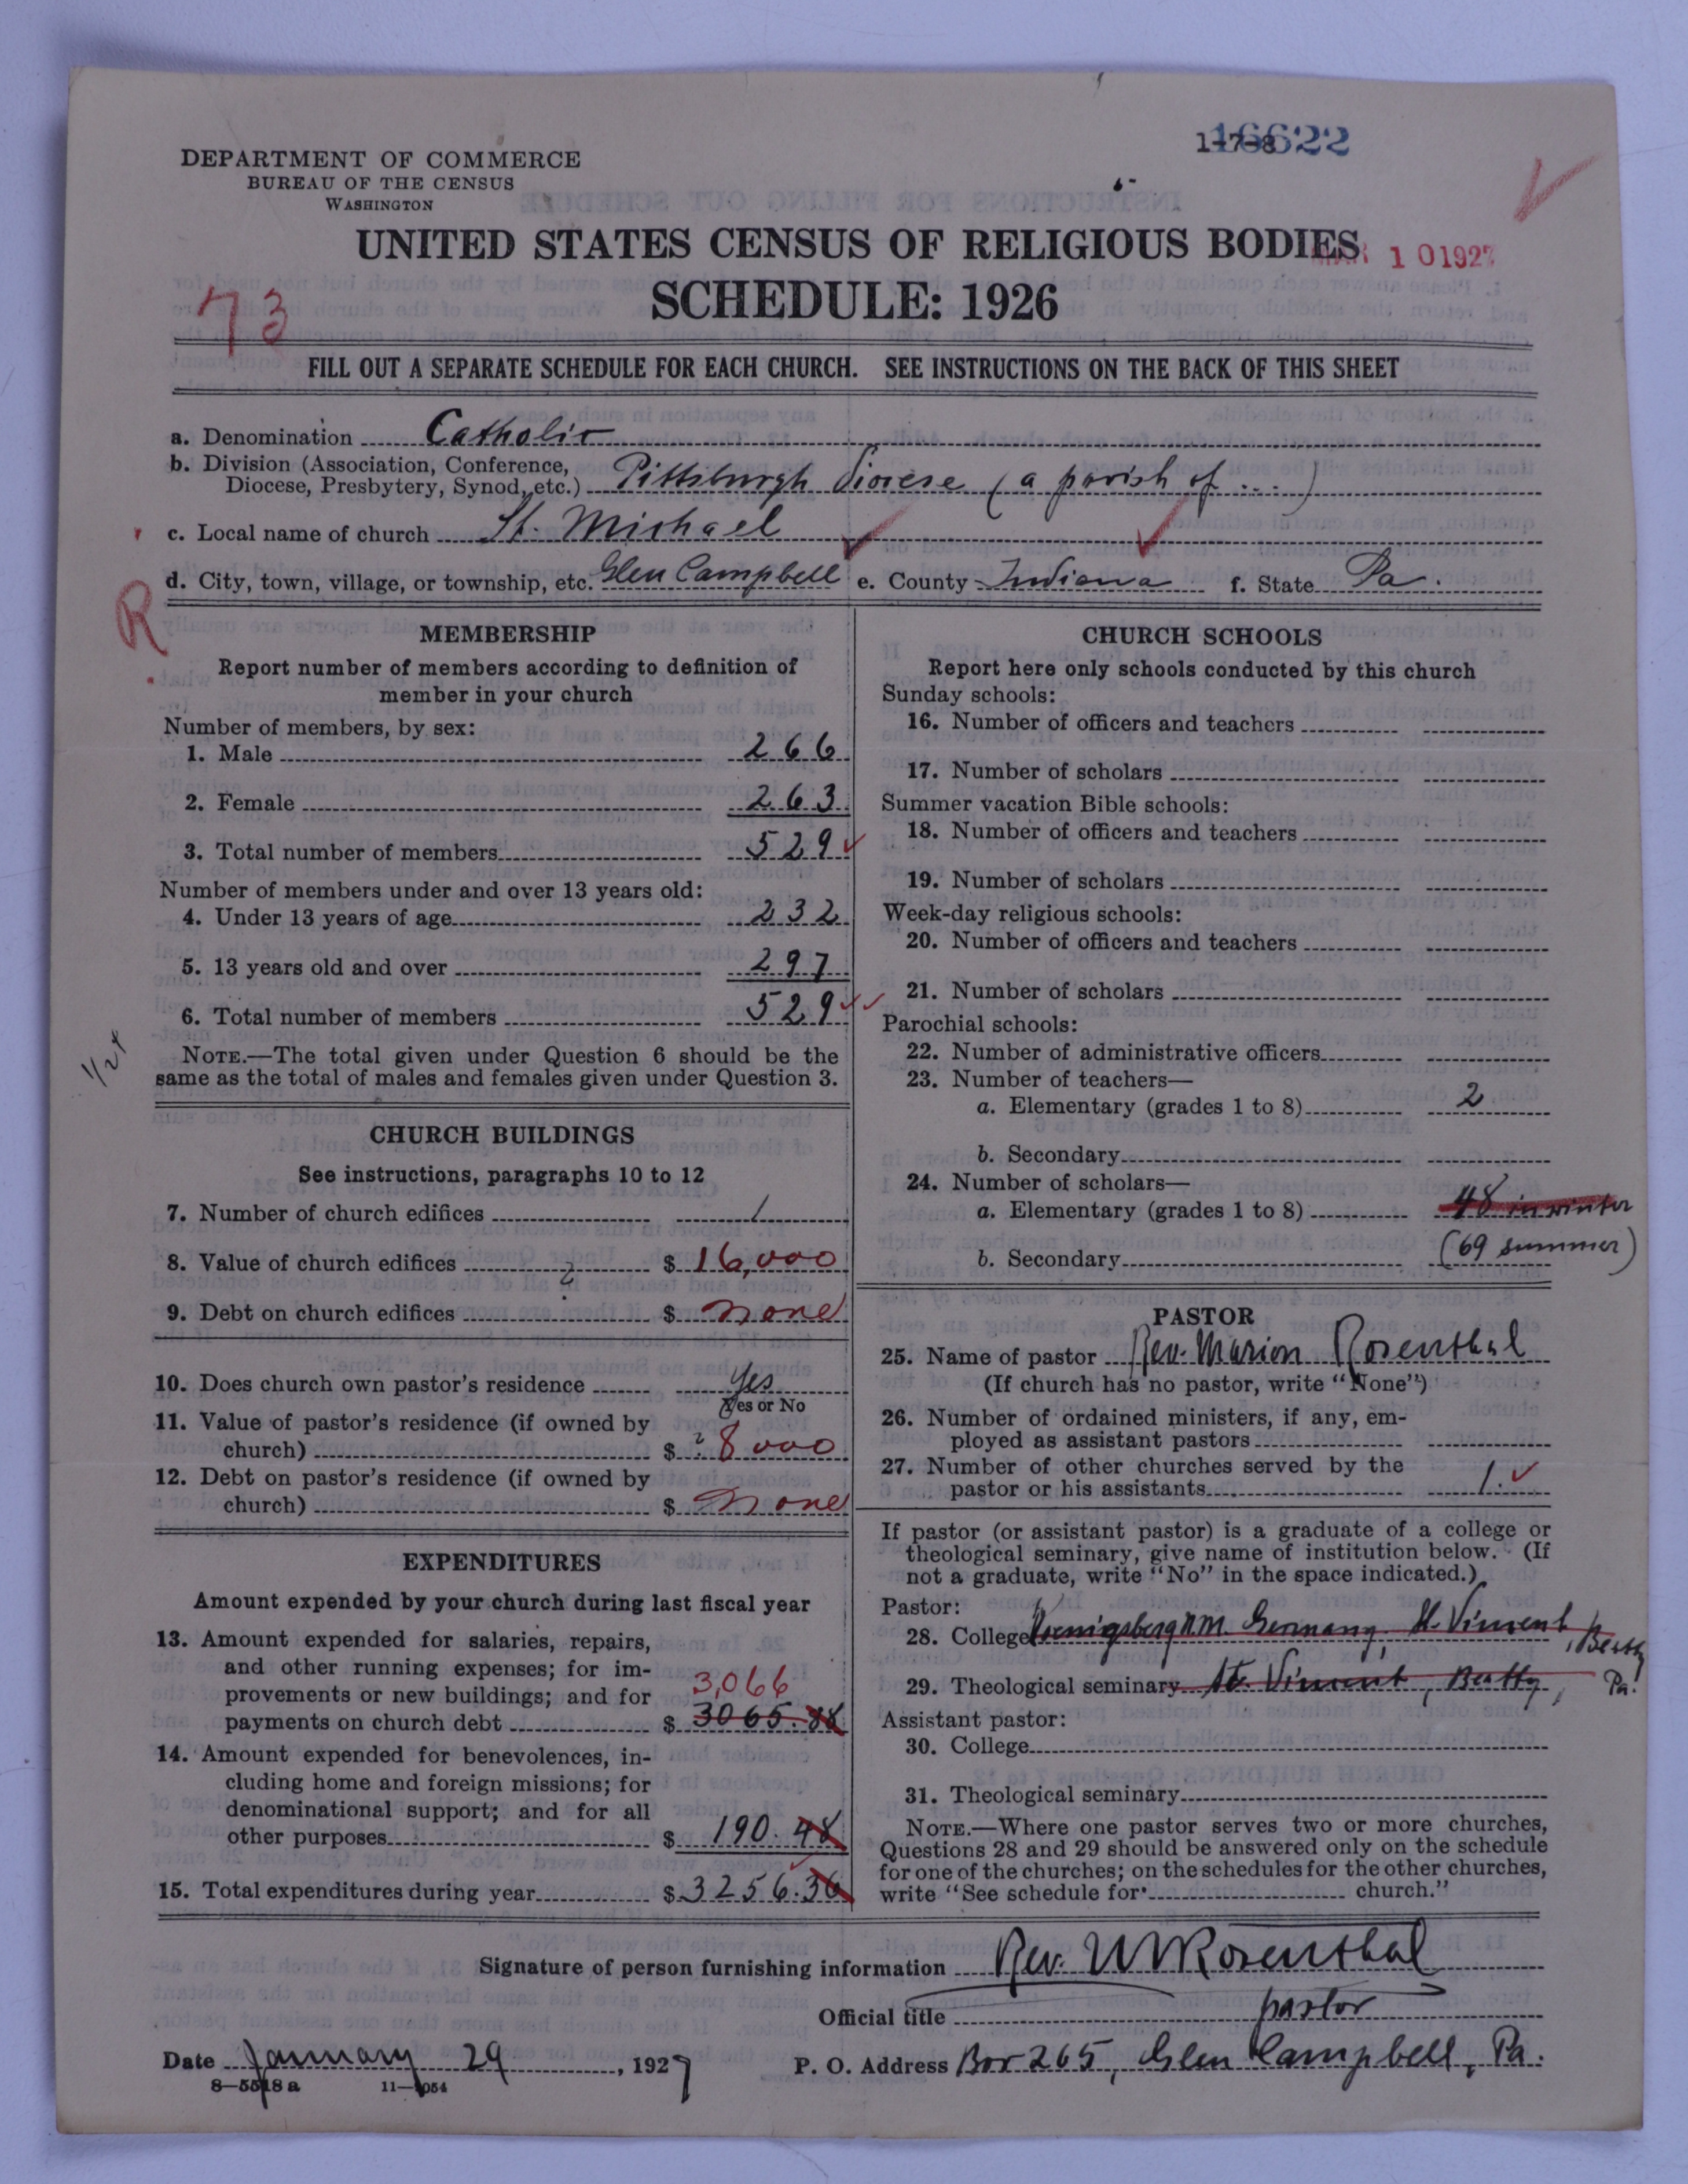 16622
1-7-8
DEPARTMENT OF COMMERCE
BUREAU OF THE CENSUS
WASHINGTON
UNITED STATES CENSUS OF RELIGIOUS BODIES
MAR 10 1927
SCHEDULE: 1926
73
FILL OUT A SEPARATE SCHEDULE FOR EACH CHURCH. SEE INSTRUCTIONS ON THE BACK OF THIS SHEET
a. Denomination Catholic
b. Division (Association, Conference, Diocese, Presbytery, Synod, etc.) Pittsburgh Diocese (a parish of ...)
c. Local name of church St. Michael
d. City, town, village, or township, etc. Glen Campbell e. County Indiana f. State Pa.
R
MEMBERSHIP
Report number of members according to definition of
member in your church
Number of members, by sex:
1. Male 266
2. Female 263
3. Total number of members 529
Number of members under and over 13 years old:
4. Under 13 years of age 232
5. 13 years old and over 297
6. Total number of members 529
NOTE.—The total given under Question 6 should be the
same as the total of males and females given under Question 3.
CHURCH BUILDINGS
See instructions, paragraphs 10 to 12
7. Number of church edifices 1
8. Value of church edifices $ 16,000
9. Debt on church edifices $ none
10. Does church own pastor's residence Yes
Yes or No
11. Value of pastor's residence (if owned by
church) $ 8000
12. Debt on pastor's residence (if owned by
church) $ none
EXPENDITURES
Amount expended by your church during last fiscal year
13. Amount expended for salaries, repairs,
and other running expenses; for im-
provements or new buildings; and for 3,066
payments on church debt $ 3065.88
14. Amount expended for benevolences, in-
cluding home and foreign missions; for
denominational support; and for all
other purposes $ 190.48
15. Total expenditures during year $ 3256.36
CHURCH SCHOOLS
Report here only schools conducted by this church
Sunday schools:
16. Number of officers and teachers
17. Number of scholars
Summer vacation Bible schools:
18. Number of officers and teachers
19. Number of scholars
Week-day religious schools:
20. Number of officers and teachers
21. Number of scholars
Parochial schools:
22. Number of administrative officers
23. Number of teachers—
a. Elementary (grades 1 to 8) 2
b. Secondary
24. Number of scholars—
a. Elementary (grades 1 to 8) 48 in winter
b. Secondary (69 summer)
PASTOR
25. Name of pastor Rev. Marion Rosenthal
(If church has no pastor, write "None")
26. Number of ordained ministers, if any, em-
ployed as assistant pastors
27. Number of other churches served by the
pastor or his assistants 1.
If pastor (or assistant pastor) is a graduate of a college or
theological seminary, give name of institution below. (If
not a graduate, write "No" in the space indicated.)
Pastor:
28. College Koenigsberg N.M. Germany, St. Vincent, Beatty
29. Theological seminary St. Vincent, Beatty, Pa.
Assistant pastor:
30. College
31. Theological seminary
NOTE.—Where one pastor serves two or more churches,
Questions 28 and 29 should be answered only on the schedule
for one of the churches; on the schedules for the other churches,
write "See schedule for church."
Signature of person furnishing information Rev. M Rosenthal
Official title pastor
Date January 29, 1927 P. O. Address Box 265, Glen Campbell, Pa.
8—5518 a 11—9054